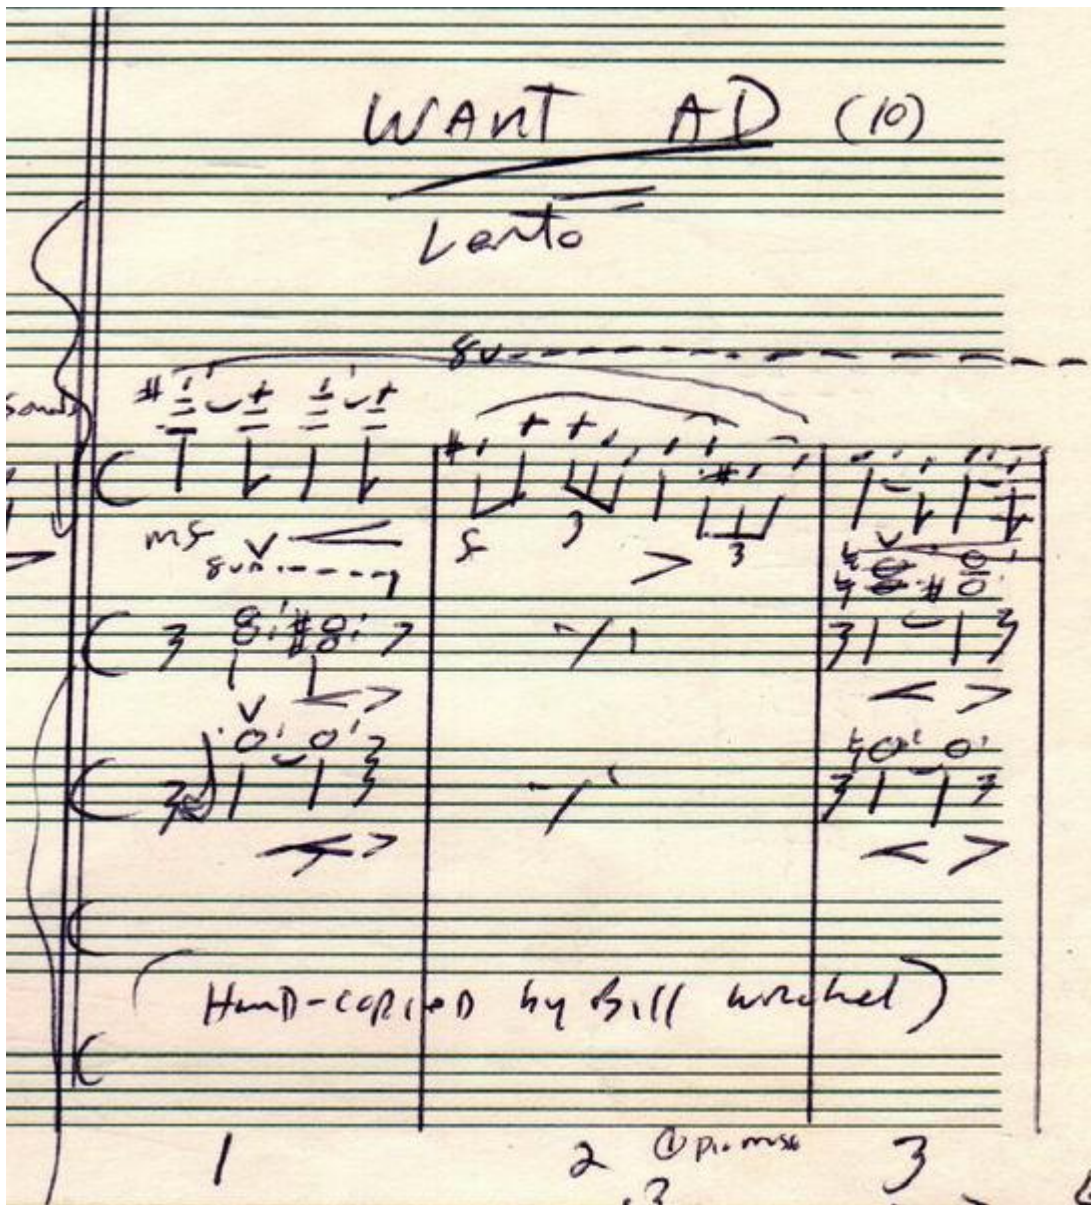 WANT AD (10)
Lento
8v
mf
8va
f
3
3
(Hand-copied by Bill Wrobel)
1 2 3